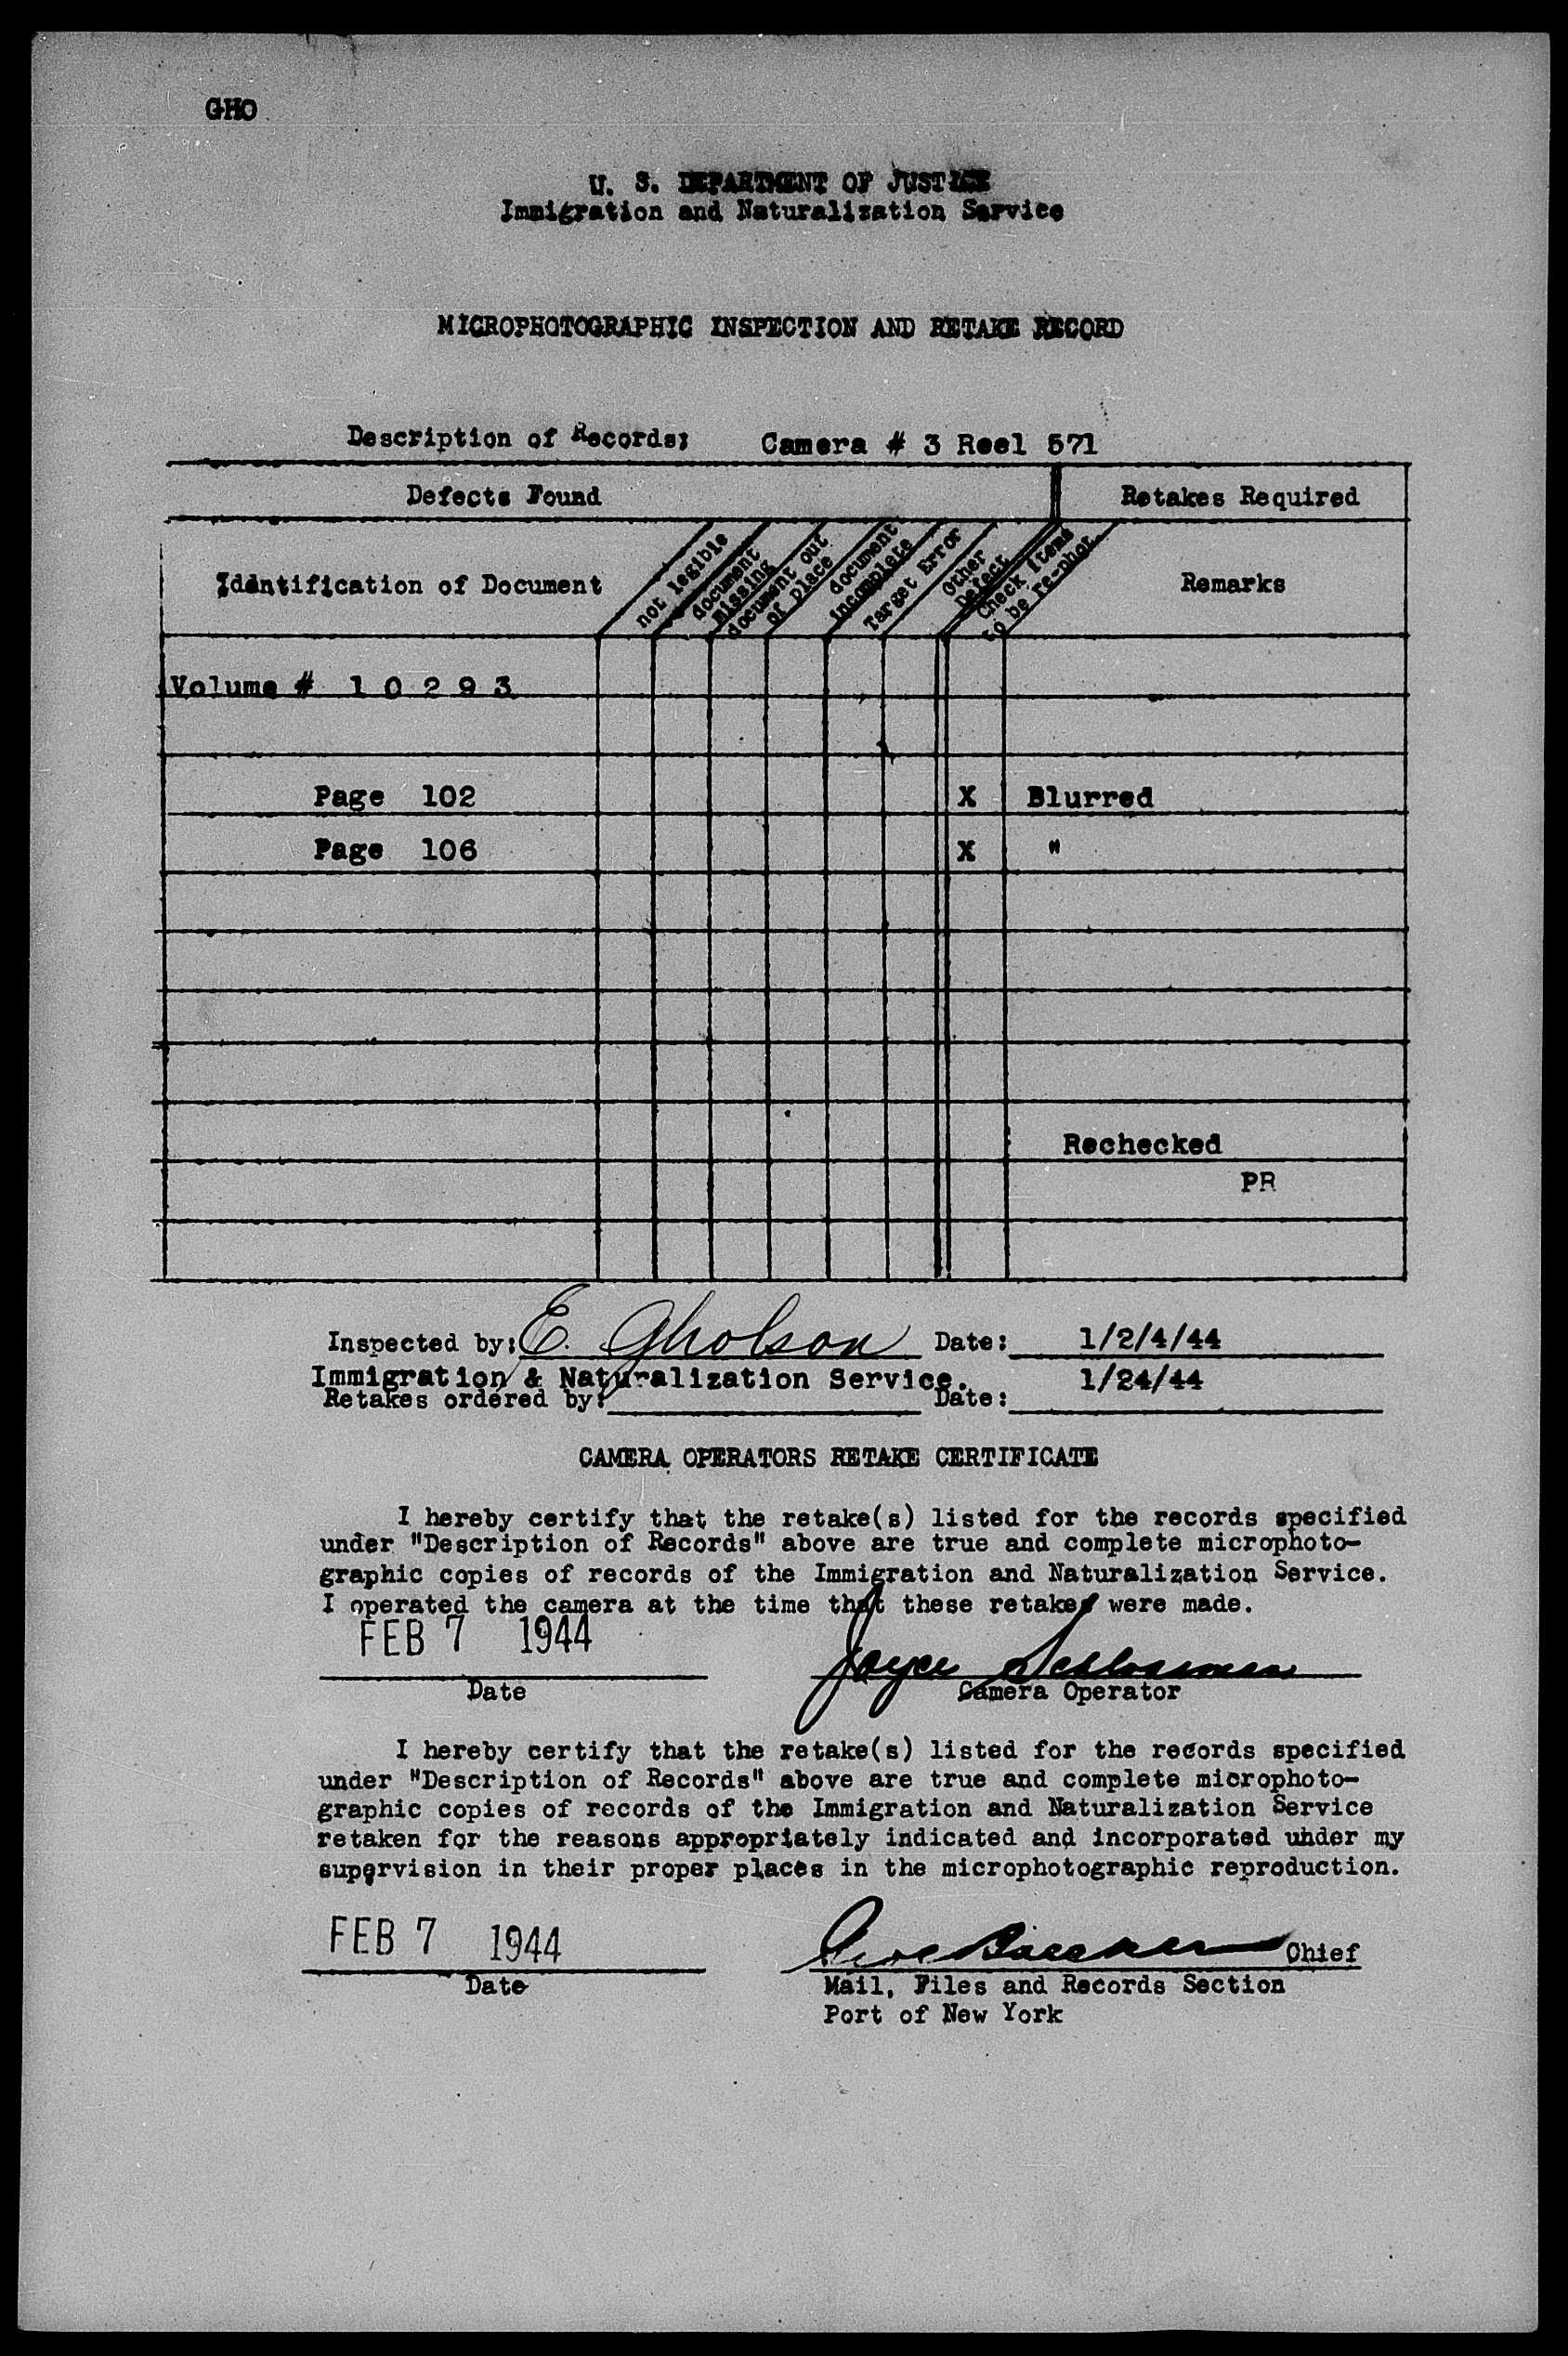 GHO
U. S. DEPARTMENT OF JUSTICE
Immigration and Naturalization Service
MICROPHOTOGRAPHIC INSPECTION AND RETAKE RECORD
Description of Records; Camera # 3 Reel 571
Defects Found Retakes Required
Identification of Document
not legible
document
missing
document out
of place
document
incomplete
Target Error
Other
Defect
Check items
to be re-phot.
Remarks
Volume # 1 0 2 9 3
Page 102 X Blurred
Page 106 X "
Rechecked
PR
Inspected by: E. Gholson Date: 1/2/4/44
Immigration & Naturalization Service. 1/24/44
Retakes ordered by: Date:
CAMERA OPERATORS RETAKE CERTIFICATE
I hereby certify that the retake(s) listed for the records specified
under "Description of Records" above are true and complete microphoto-
graphic copies of records of the Immigration and Naturalization Service.
I operated the camera at the time that these retakes were made.
FEB 7 1944 Joyce Schlossman
Date Camera Operator
I hereby certify that the retake(s) listed for the records specified
under "Description of Records" above are true and complete microphoto-
graphic copies of records of the Immigration and Naturalization Service
retaken for the reasons appropriately indicated and incorporated under my
supervision in their proper places in the microphotographic reproduction.
FEB 7 1944 Chief
Date Mail, Files and Records Section
Port of New York